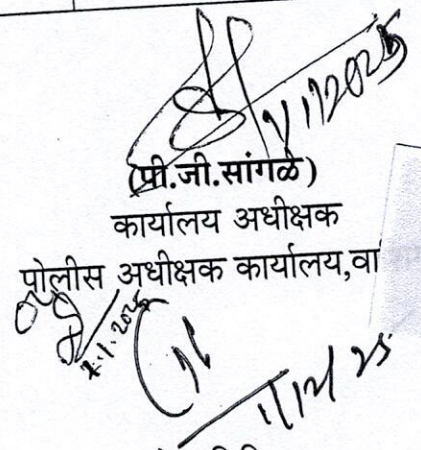 1/1/2025
(प्री.जी.सांगळे)
कार्यालय अधीक्षक
पोलीस अधीक्षक कार्यालय,वा
1.1.2025